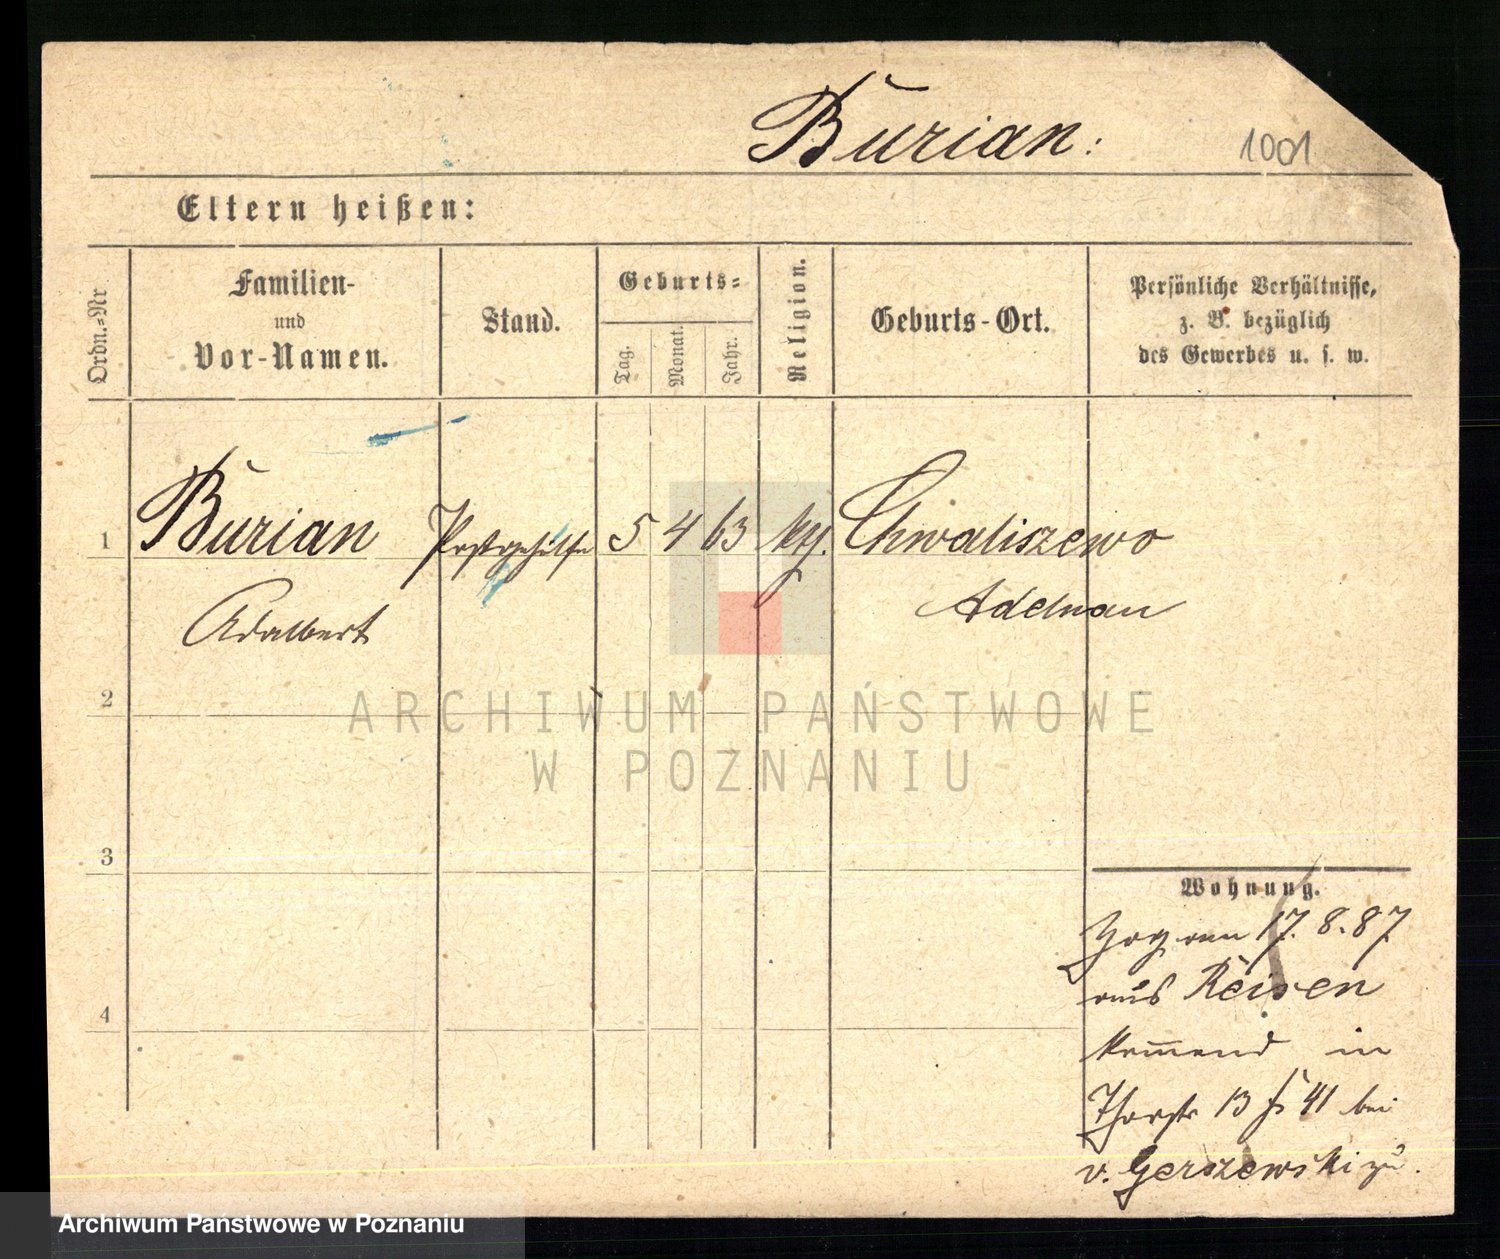 Burian:
1001
Eltern heißen:
Ordn.-Nr
Familien-
und
Vor-Namen.
Stand.
Geburts-
Tag.
Monat.
Jahr.
Religion.
Geburts-Ort.
Persönliche Verhältnisse,
z. B. bezüglich
des Gewerbes u. s. w.
1
Burian
Adalbert
Postgehülfe
5 4 63
Chwaliszewo
Adelnau
2
3
4
Wohnung.
Zog am 17. 8. 87
aus Reisen
kommend in
Thorstr 13 41 bei
v. Gerszewski zu.
ARCHIWUM PAŃSTWOWE
W POZNANIU
Archiwum Państwowe w Poznaniu